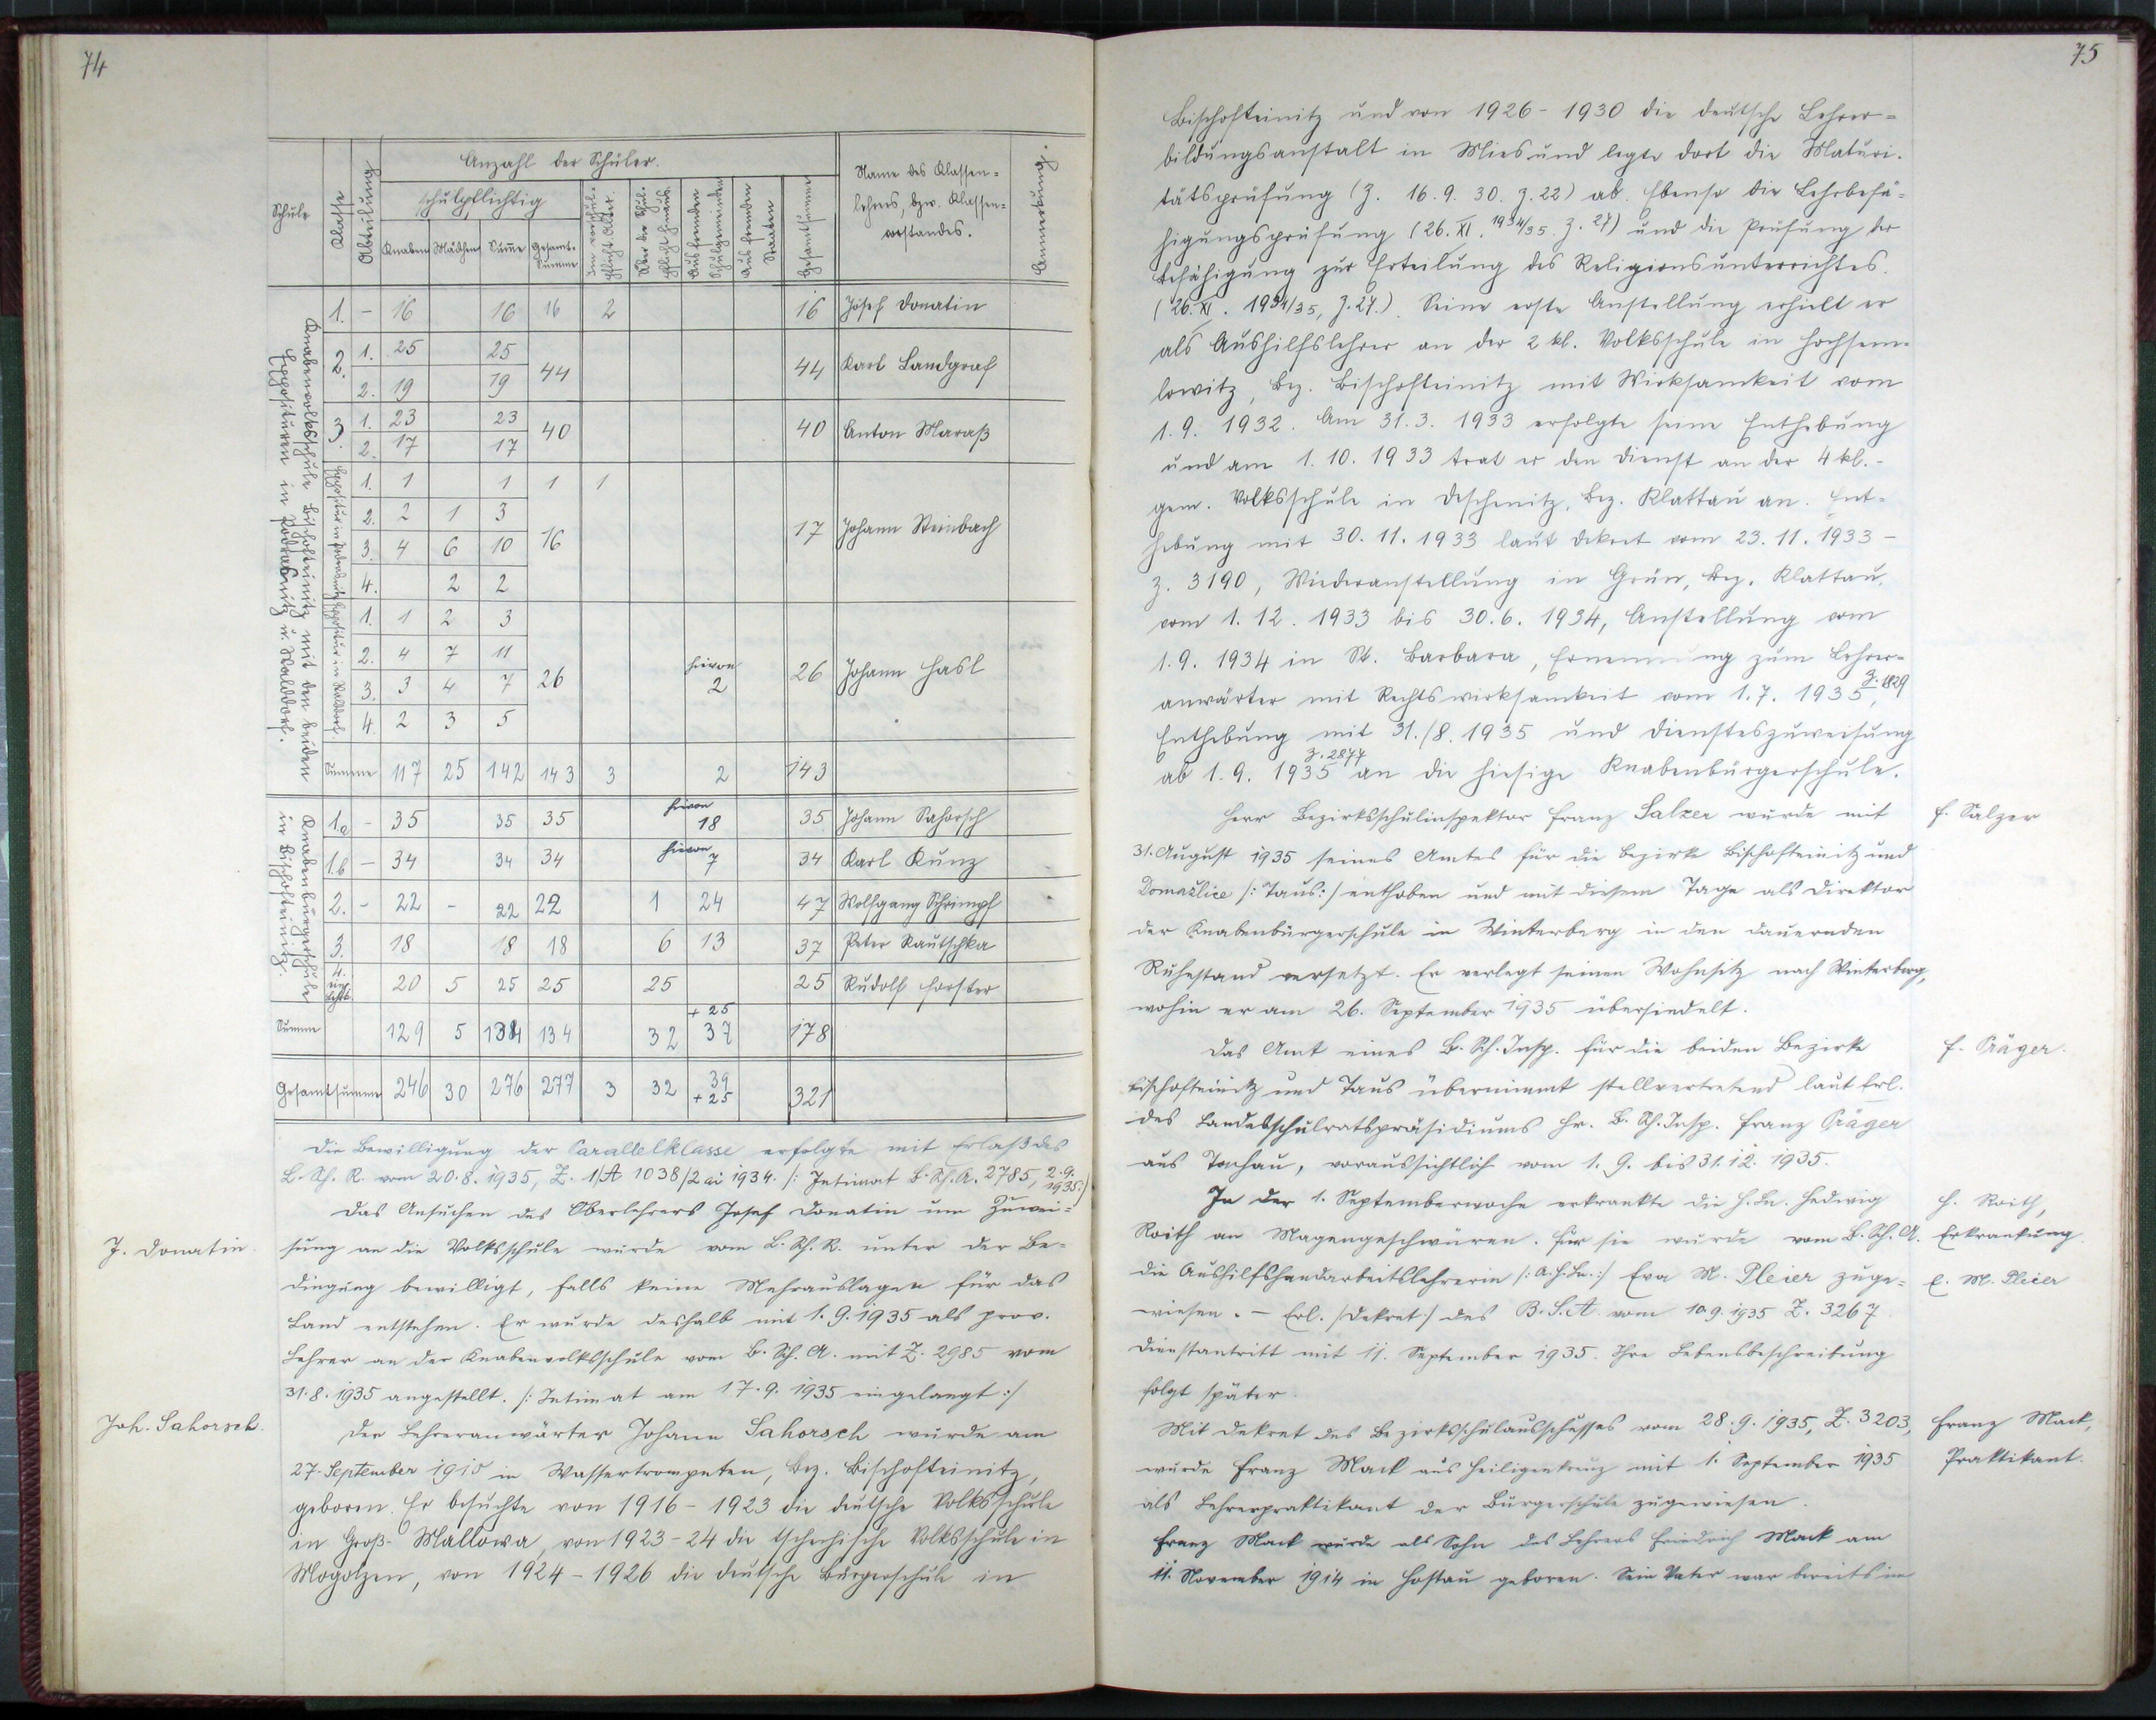 74
Anzahl der Schüler.
Schule Klasse Abteilung schulpflichtig Im vorschulpflicht. Alter. Über die Schulpflicht hinaus. Aus fremden Schulgemeinden Aus fremden Staaten Gesamtsumme Name des Klassen=lehrers, bzw. Klassen=vorstandes. Anmerkung.
Knaben Mädchen Summe Gesamt-Summe
Knabenvolksschule Bischofteinitz mit den beiden
Exposituren in Podrasnitz u. Walddorf.
1. – 16 16 16 2 16 Josef Donatin
2. 1. 25 25 44 44 Karl Landgraf
2. 19 19
3. 1. 23 23 40 40 Anton Maraß
2. 17 17
Expositur in Podrasnitz
1. 1 1 1 1
2. 2 1 3 16 17 Johann Steinbach
3. 4 6 10
4. 2 2
Expositur in Walddorf.
1. 1 2 3
2. 4 7 11 26 hievon 2 26 Johann Hasl
3. 3 4 7
4. 2 3 5
Summe 117 25 142 143 3 2 143
Knabenbürgerschule
in Bischofteinitz.
1.a – 35 35 35 hievon 18 35 Johann Sahorsch
1.b – 34 34 34 hievon 7 34 Karl Kunz
2. – 22 – 22 22 1 24 47 Wolfgang Schrimpf
3. 18 18 18 6 13 37 Peter Rautschka
4. 20 5 25 25 25 25 Rudolf Forster
Summe 129 5 134 134 32 + 25 37 178
Gesamtsumme 246 30 276 277 3 32 39 + 25 321
Die Bewilligung der Parallelklasse erfolgte mit Erlaß des
L. Sch. R. vom 20.8.1935, Z. 1/A 1038/2 ai 1934. /: Intimat B. Sch. A. 2785, 2.9. 1935:/
Das Ansuchen des Oberlehrers Josef Donatin um Zuwei=
J. Donatin.
sung an die Volksschule wurde vom L. Sch. R. unter der Be=
dingung bewilligt, falls keine Mehrauslagen für das
Land entstehen. Er wurde deshalb mit 1.9.1935 als prov.
Lehrer an der Knabenvolksschule vom B. Sch. A. mit Z. 2985 vom
31.8.1935 angestellt. /: Intimat am 17.9.1935 eingelangt :/
Joh. Sahorsch.
Der Lehreranwärter Johann Sahorsch wurde am
27. September 1910 in Wassertrompeten, Bez. Bischofteinitz,
geboren. Er besuchte von 1916 – 1923 die deutsche Volksschule
in Groß-Mallowa, von 1923-24 die tschechische Volksschule in
Mogolzen, von 1924 – 1926 die deutsche Bürgerschule in
75
Bischofteinitz und von 1926 – 1930 die deutsche Lehrer=
bildungsanstalt in Mies und legte dort die Maturi-
tätsprüfung (Z. 16.9.30. Z.22) ab. Ebenso die Lehrbefä=
higungsprüfung (26. XI. 1934/35. Z. 27) und die Prüfung der
Befähigung zur Erteilung des Religionsunterrichtes.
(26. XI. 1934/35, Z.27.). Seine erste Anstellung erhielt er
als Aushilfslehrer an der 2 kl. Volksschule in Hochsem-
lowitz, Bez. Bischofteinitz mit Wirksamkeit vom
1.9. 1932. Am 31.3. 1933 erfolgte seine Enthebung
und am 1.10. 1933 trat er den Dienst an der 4 kl.-
gem. Volksschule in Deschenitz, Bez. Klattau an. Ent=
hebung mit 30. 11. 1933 laut Dekret vom 23. 11. 1933 –
Z. 3190, Wiederanstellung in Grün, Bez. Klattau,
vom 1. 12. 1933 bis 30.6. 1934, Anstellung vom
1.9. 1934 in St. Barbara, Ernennung zum Lehrer=
anwärter mit Rechtswirksamkeit vom 1.7. 1935, Z. 1829
Enthebung mit 31./8. 1935 und Diensteszuweisung
ab 1.9. 1935 Z. 2877 an die hiesige Knabenbürgerschule.
Herr Bezirksschulinspektor Franz Salzer wurde mit
F. Salzer
31. August 1935 seines Amtes für die Bezirke Bischofteinitz und
Domažlice /: Taus:/ enthoben und mit diesem Tage als Direktor
der Knabenbürgerschule in Winterberg in den dauernden
Ruhestand versetzt. Er verlegt seinen Wohnsitz nach Winterberg,
wohin er am 26. September 1935 übersiedelt.
Das Amt eines B. Sch. Insp. für die beiden Bezirke
F. Präger.
Bischofteinitz und Taus übernimmt stellvertretend laut Erl.
des Landesschulratspräsidiums Hr. B. Sch. Insp. Franz Präger
aus Tachau, voraussichtlich vom 1. 9. bis 31.12. 1935.
In der 1. Septemberwoche erkrankte die H. Ln. Hedwig
H. Roith,
Roith an Magengeschwüren. Für sie wurde vom B. Sch. A.
Erkrankung.
die Aushilfshandarbeitslehrerin /: A.H.Ln.:/ Eva M. Pleier zuge=
E. M. Pleier
wiesen. – Erl. /Dekret:/ des B.S.A. vom 10.9. 1935 Z. 3267.
Dienstantritt mit 11. September 1935. Ihre Lebensbeschreibung
folgt später.
Mit Dekret des Bezirksschulausschusses vom 28.9.1935, Z. 3203,
Franz Mack,
wurde Franz Mack aus Heiligenkreuz mit 1. September 1935
Praktikant.
als Lehrerpraktikant der Bürgerschule zugewiesen.
Franz Mack wurde als Sohn des Lehrers Friedrich Mack am
11. November 1914 in Hostau geboren. Sein Vater war bereits im